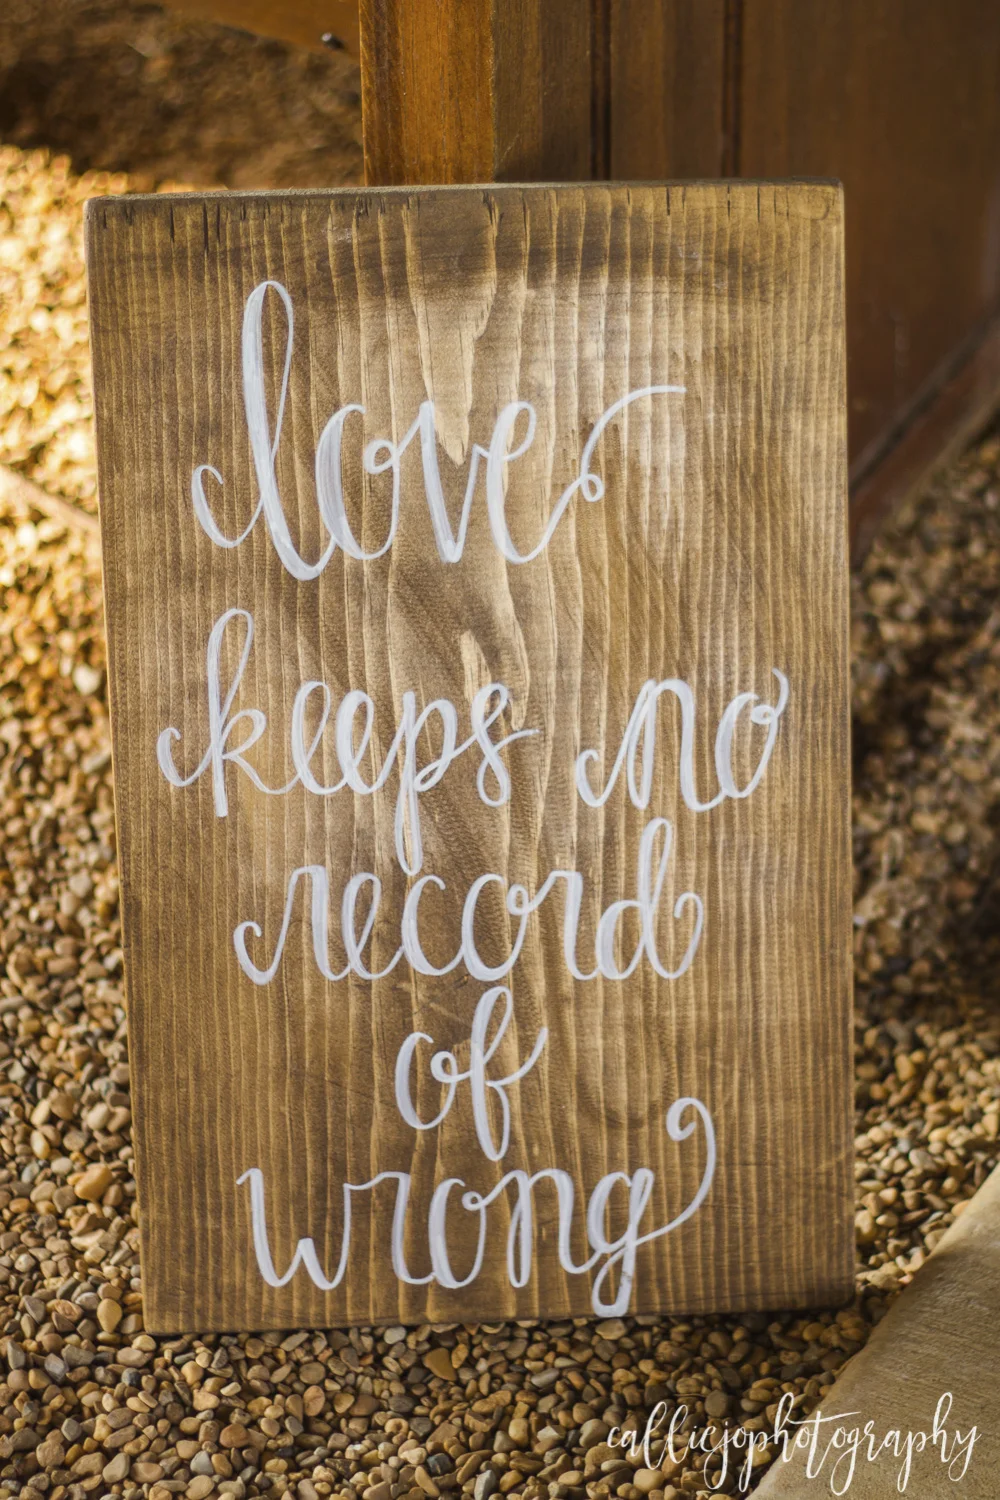 love
keeps no
record
of
wrong
calliejophotography